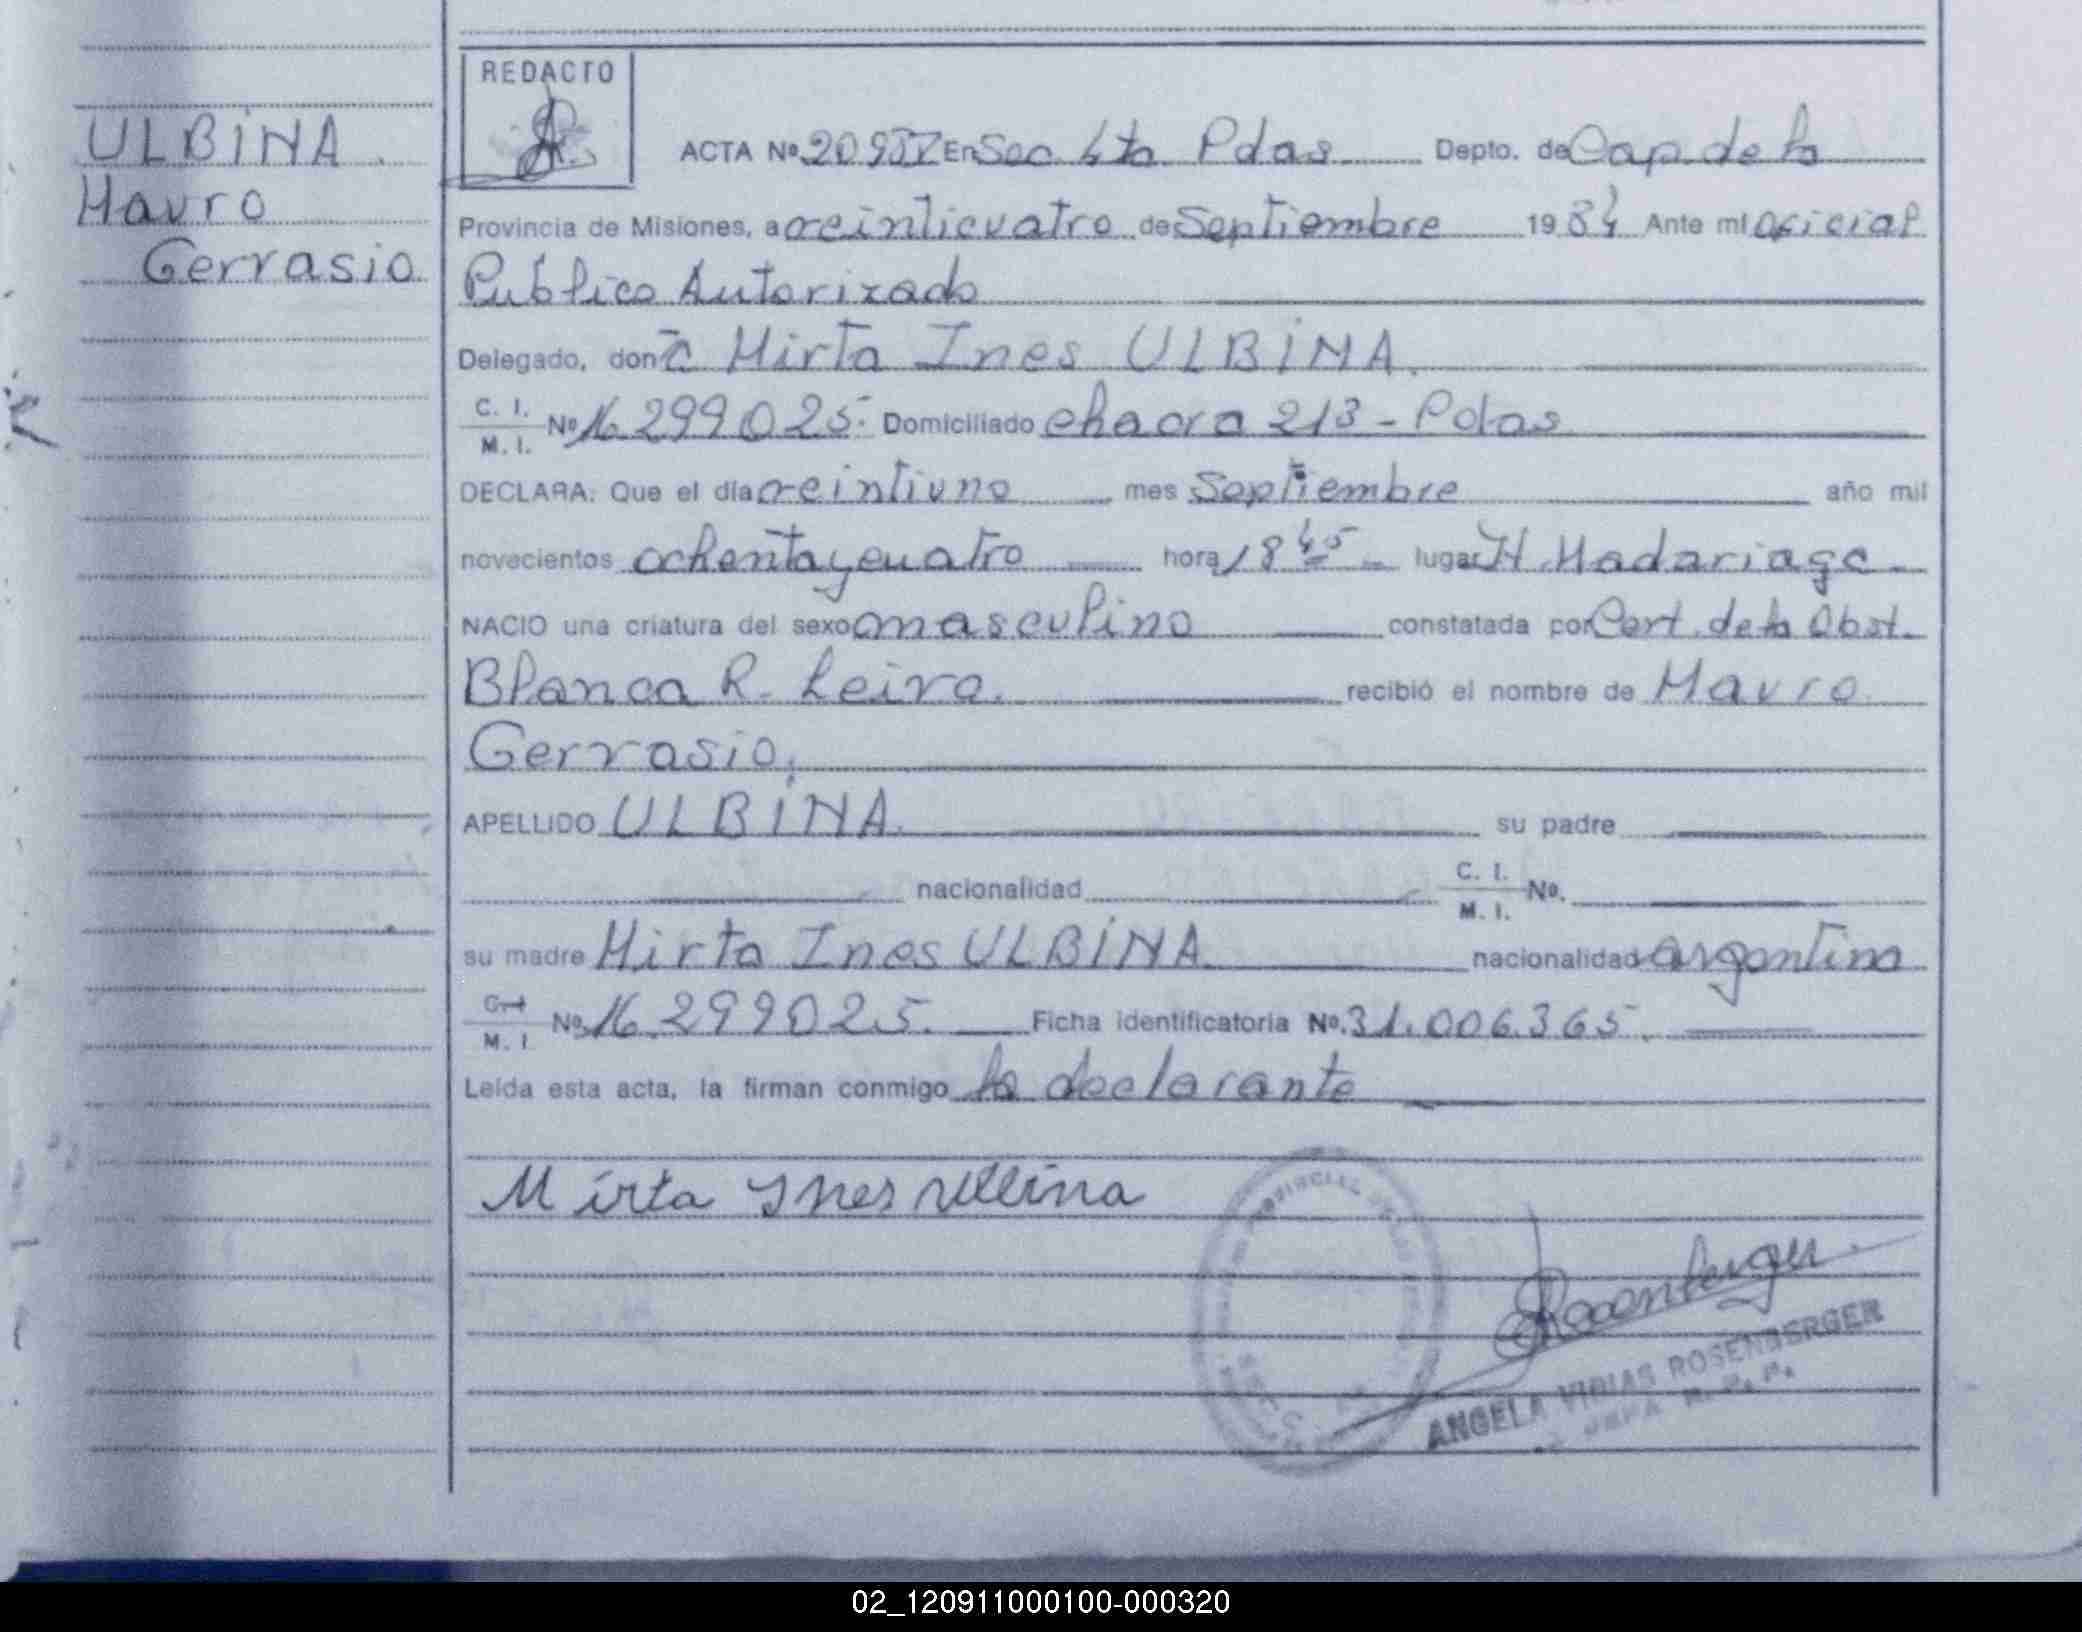 ULBINA
Mauro
Gervasio
REDACTO
ACTA Nº 2095I En Sec 4ta Pdas. Depto. de Cap. de la
Provincia de Misiones, a veinticuatro de Septiembre 1984 Ante mi Oficial
Público Autorizado
Delegado, don ña Mirta Ines ULBINA.
C. I. M. I. Nº 16.299025. Domiciliado chacra 213 - Pdas
DECLARA: Que el día veintiuno mes Septiembre año mil
novecientos ochenta y cuatro hora 18 45 lugar H. Madariaga
NACIO una criatura del sexo masculino constatada por Cert. de la Obst.
Blanca R. Leiva. recibió el nombre de Mauro
Gervasio,
APELLIDO ULBINA. su padre
nacionalidad C. I. M. I. Nº.
su madre Mirta Ines ULBINA. nacionalidad argentina
C. I. M. I Nº 16.299025. Ficha identificatoria Nº. 31.006.365.
Leída esta acta, la firman conmigo la declarante
Mirta Ines Ulbina
PROVINCIAL
Rosenberger
ANGELA VIRIAS ROSENBERGER
JEFA R. P. P.
02_120911000100-000320